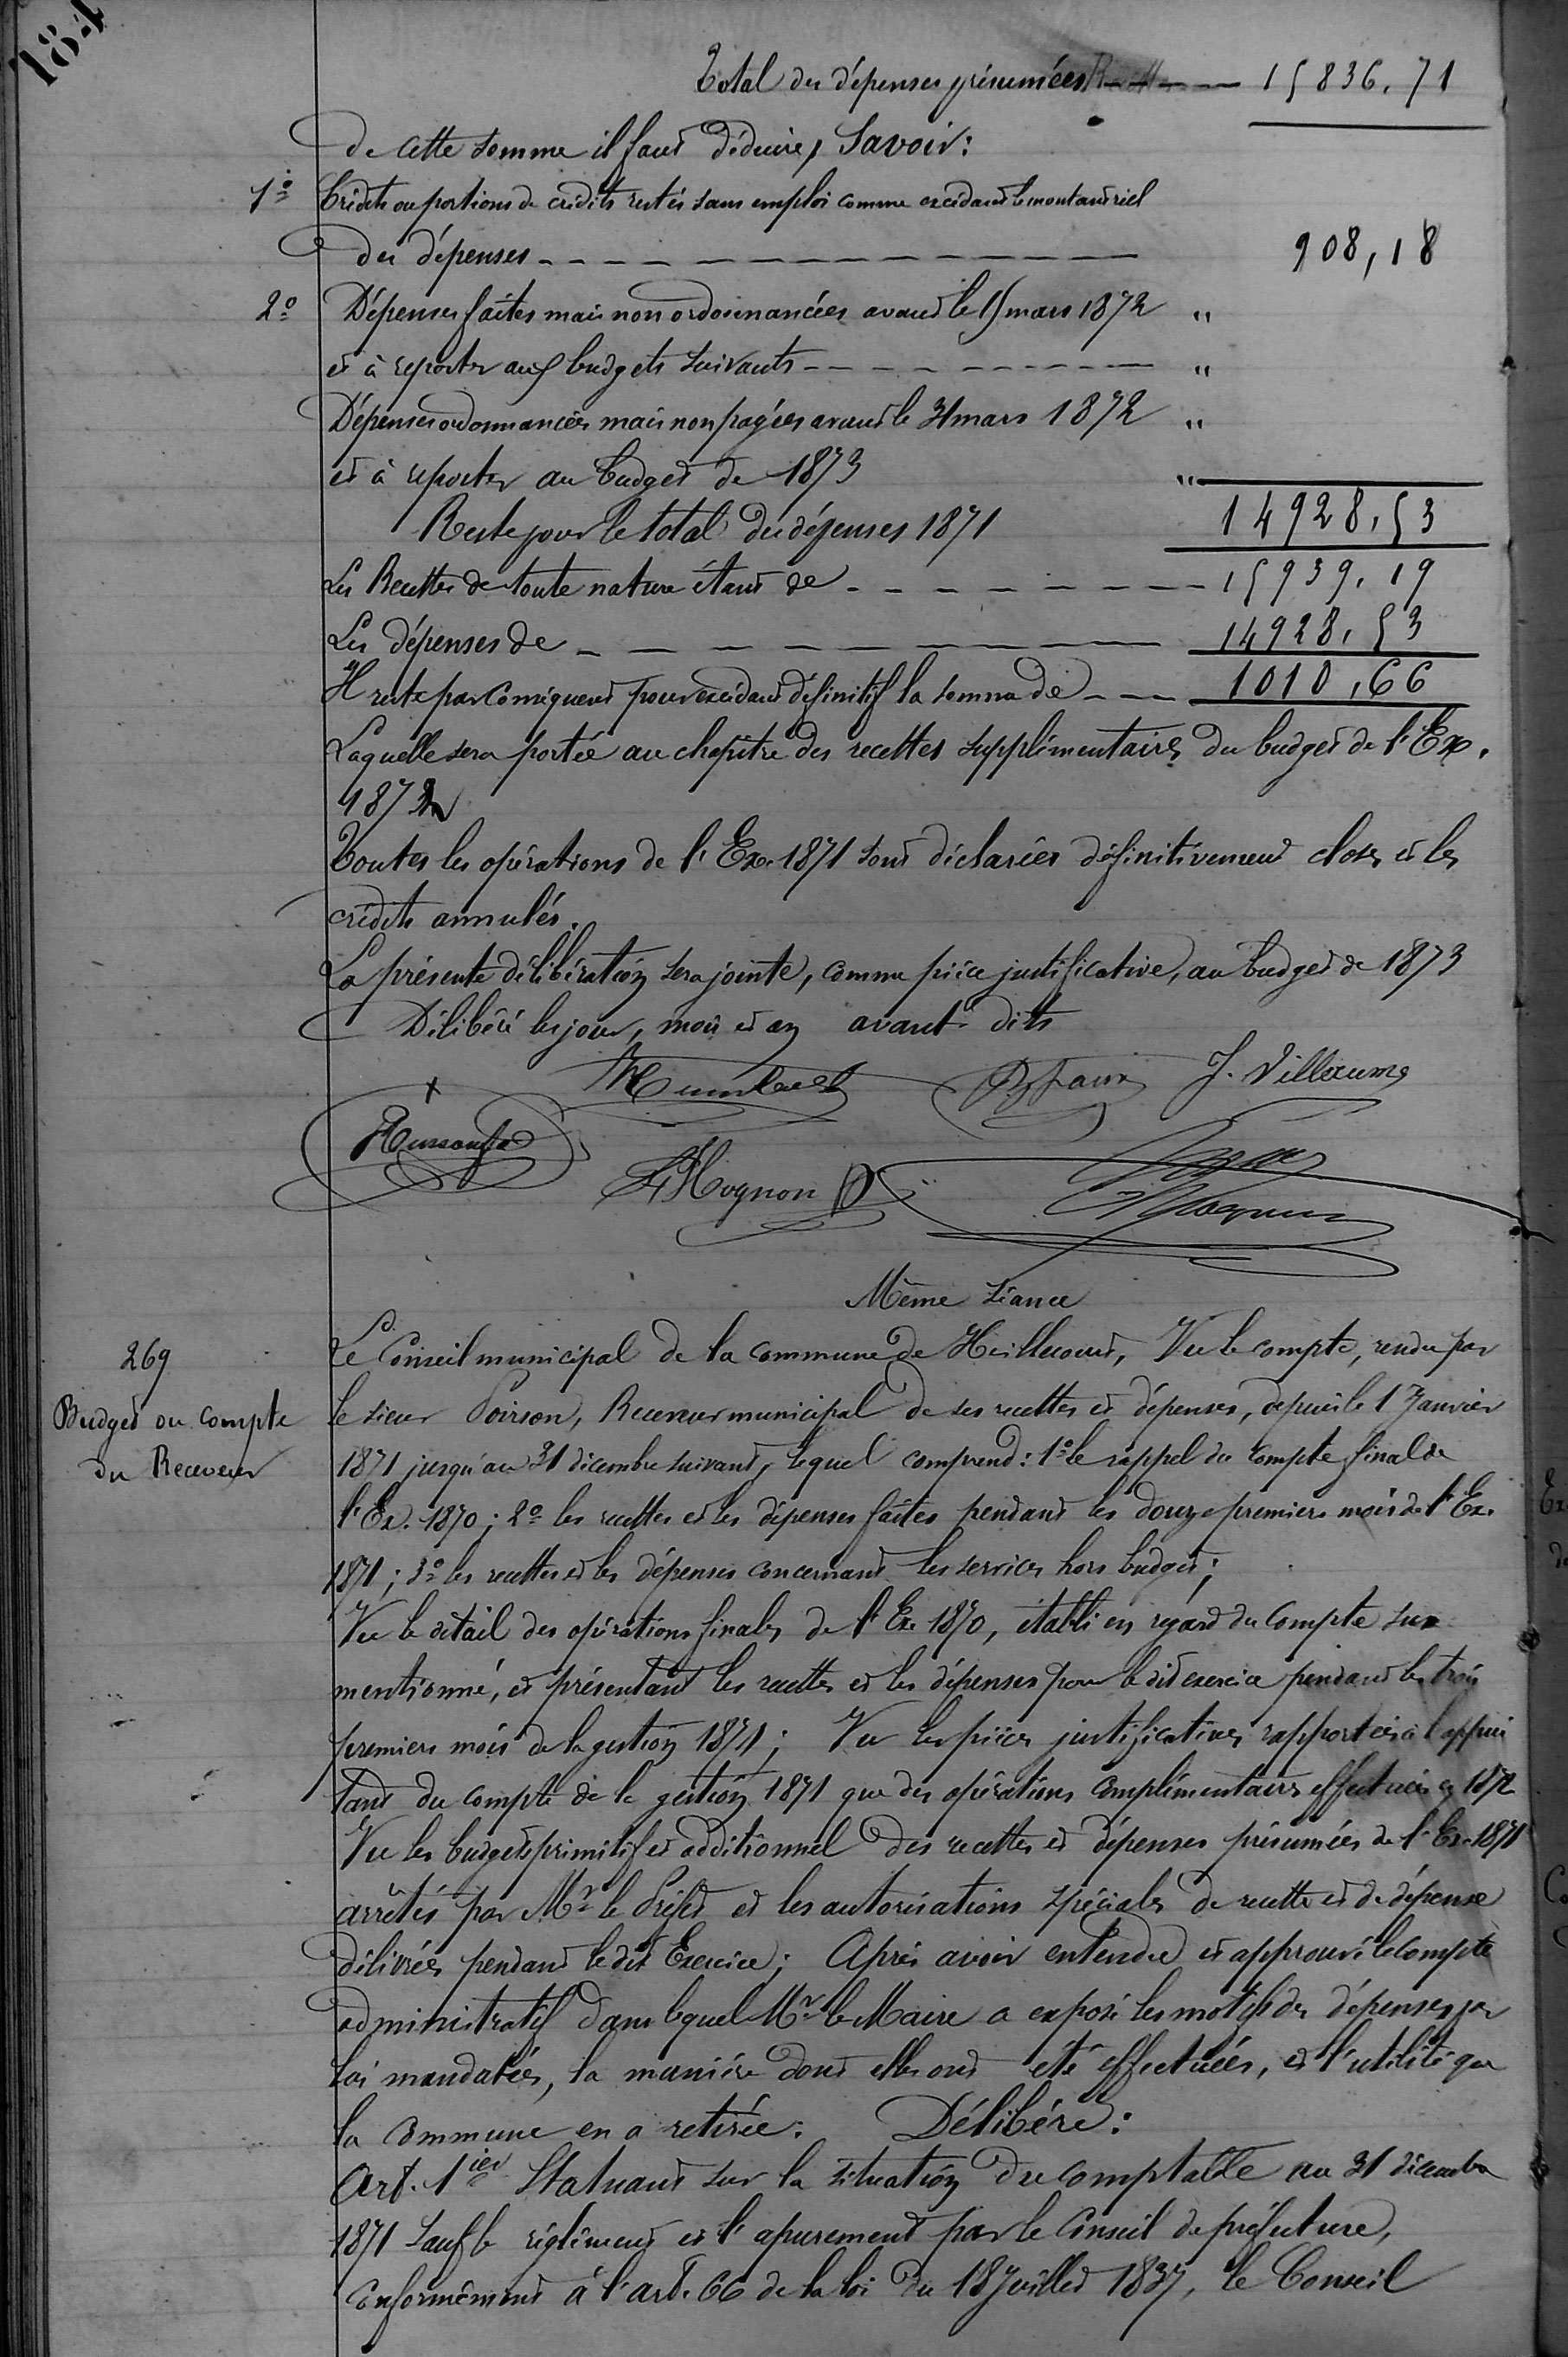 184
Total des dépenses présumées 15836,71
de cette somme il faut déduire, Savoir:
1° Crédits ou portions de crédits restés sans emploi comme excédant le montant réel
des dépenses 908,18
2° Dépenses faites mais non ordonnancées avant le 15 mars 1872 "
et à reporter aux budgets suivants "
Dépenses ordonnancées mais non payées avant le 31 mars 1872 "
et à reporter au budget de 1873 "
Reste pour le total des dépenses 1871 14928,53
Les Recettes de toute nature étant de 15939,19
Les dépenses de 14928,53
Il reste par conséquent pour excédant définitif la somme de 1010,66
Laquelle sera portée au chapitre des recettes supplémentaires du budget de l'Ex.
1872
Toutes les opérations de l'Ex. 1871 sont déclarées définitivement closes et les
crédits annulés.
La présente délibération sera jointe, comme pièce justificative, au budget de 1873
Délibéré les jour, mois et an avant dits
J. Villaume
F. Hognon
Même séance
269
Budget ou compte
du Receveur
Le Conseil municipal de la commune de Heillecourt, Vu le compte, rendu par
le sieur Poirson, Receveur municipal de ses recettes et dépenses, depuis le 1 Janvier
1871 jusqu'au 31 décembre suivant, lequel comprend: 1° le rappel du compte final de
l'Ex. 1870; 2° les recettes et les dépenses faites pendant les douze premiers mois de l'Ex.
1871; 3° les recettes et les dépenses concernant les services hors budget;
Vu le détail des opérations finales de l'Ex. 1870, établi en régard du compte sus
mentionné, et présentant les recettes et les dépenses pour le dit exercice pendant les trois
premiers mois de la gestion 1871; Vu les pièces justificatives rapportées à l'appui
tant du compte de la gestion 1871 que des opérations complémentaires effectuées en 1872
Vu les budgets primitif et additionnel des recettes et dépenses présumées de l'Ex. 1871
arrêtés par Mr le Préfet et les autorisations spéciales de recette et de dépense
délivrées pendant le dit Exercice; Après avoir entendu et approuvé le compte
administratif dans lequel Mr le Maire a exposé les motifs des dépenses par
lui mandatées, la manière dont elles ont été effectuées, et l'utilité que
la commune en a retirée: Délibére:
Art. 1ier Statuant sur la situation du comptable au 31 décembre
1871 sauf le réglement et l'apurement par le Conseil de préfecture,
conformément à l'art. 66 de la loi du 18 Juillet 1837, le Conseil